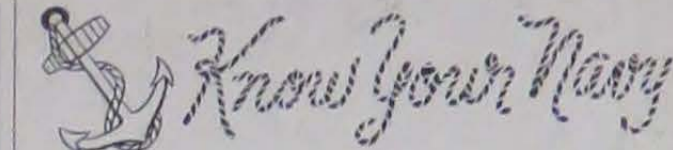 Know Your Navy